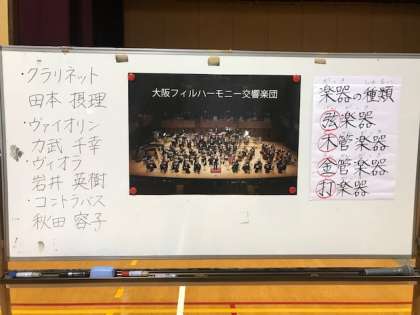 ・クラリネット
田本 摂理
・ヴァイオリン
力武 千幸
・ヴィオラ
岩井 英樹
・コントラバス
秋田 容子
大阪フィルハーモニー交響楽団
がっき しゅるい
楽器の種類
弦楽器
木管楽器
金管楽器
打楽器